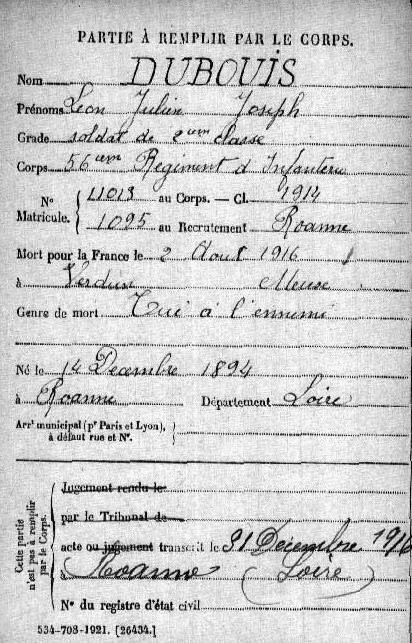 PARTIE À REMPLIR PAR LE CORPS.
Nom DUBOUIS
Prénoms Léon Julien Joseph
Grade soldat de 2eme classe
Corps 56eme Régiment d Infanterie
N° Matricule. { 11013 au Corps. — Cl. 1914
1095 au Recrutement Roanne
Mort pour la France le 2 Aout 1916
à Verdun Meuse
Genre de mort Tué à l'ennemi
Né le 14 Decembre 1894
à Roanne Département Loire
Arrt municipal (pr Paris et Lyon),
à défaut rue et N°.
Cette partie n'est pas à remplir par le Corps.
Jugement rendu le
par le Tribunal de
acte ou jugement transcrit le 31 Décembre 1916
à Roanne (Loire)
N° du registre d'état civil
534-708-1921. [26434.]